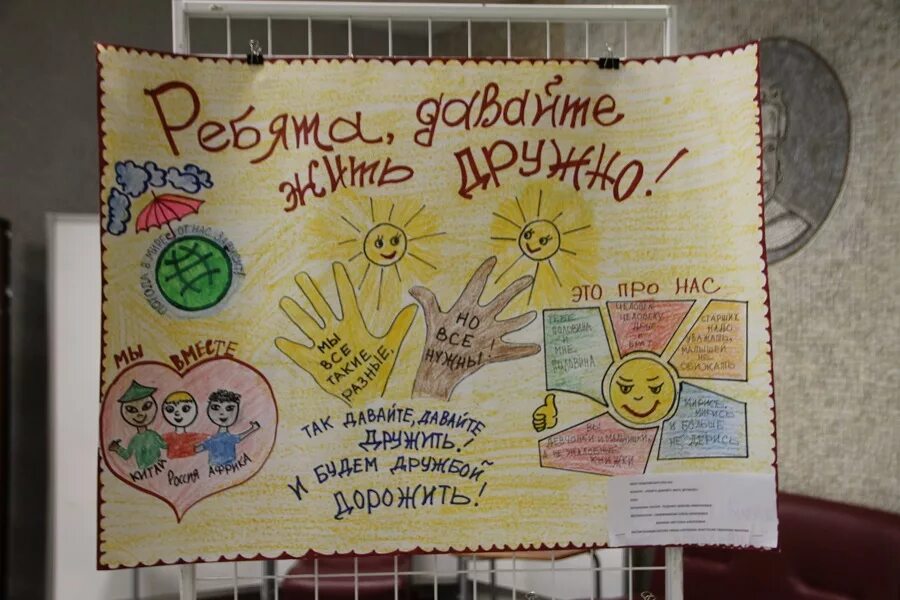 Ребята, давайте
жить дружно!
ПОГОДА В МИРЕ ОТ НАС ЗАВИСИТ!
МЫ ВМЕСТЕ
КИТАЙ РОССИЯ АФРИКА
МЫ
ВСЕ
ТАКИЕ
РАЗНЫЕ,
НО
ВСЕ
НУЖНЫ!
ТАК ДАВАЙТЕ, ДАВАЙТЕ
ДРУЖИТЬ!
И БУДЕМ ДРУЖБОЙ
ДОРОЖИТЬ!
ЭТО ПРО НАС
ТЕБЕ
ПОЛОВИНА
И
МНЕ
ПОЛОВИНА
ЧЕЛОВЕК
ЧЕЛОВЕКУ
ДРУГ
И
БРАТ
СТАРШИХ
НАДО
УВАЖАТЬ,
МАЛЫШЕЙ
НЕ
ОБИЖАТЬ
МИРИСЬ,
МИРИСЬ
И БОЛЬШЕ
НЕ ДЕРИСЬ
ВЫ
ДЕВЧОНКИ И МАЛЬЧИШКИ,
А НЕ
КНИЖКИ